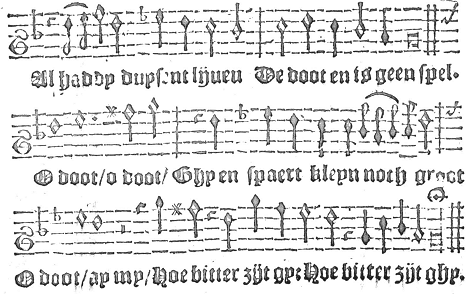 Al haddy duysent lijuen De doot en is geen spel.
O doot/o doot/ Ghy en spaert kleyn noch groot
O doot/ay my/Hoe bitter zijt gy: Hoe bitter zijt ghy.